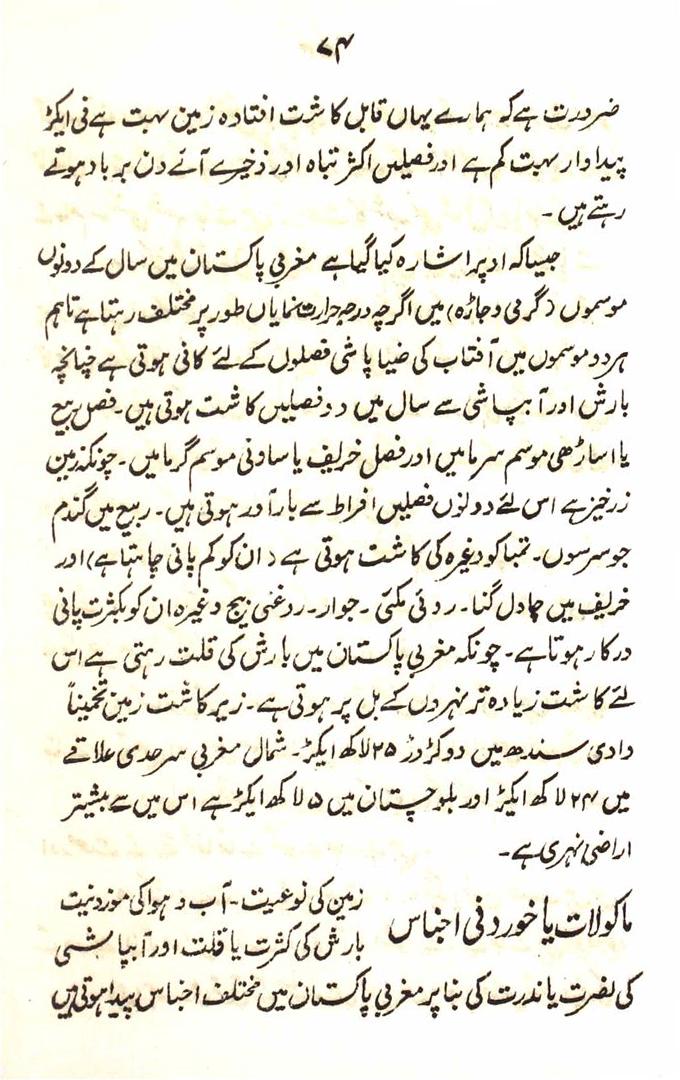 ۷۴
ضرورت ہے کہ ہمارے یہاں قابل کاشت افتادہ زمین بہت ہے فی ایکڑ
پیداوار بہت کم ہے اور فصلیں اکثر تباہ اور ذخیرے آئے دن برباد ہوتے
رہتے ہیں ۔
جیسا کہ اوپر اشارہ کیا گیا ہے مغربی پاکستان میں سال کے دونوں
موسموں (گرمی و جاڑہ) میں اگرچہ درجہ حرارت نمایاں طور پر مختلف رہتا ہے تاہم
ہر دو موسموں میں آفتاب کی ضیا پاشی فصلوں کے لئے کافی ہوتی ہے چنانچہ
بارش اور آبپاشی سے سال میں دو فصلیں کاشت ہوتی ہیں ۔ فصل ربیع
یا اساڑھی موسم سرما میں اور فصل خریف یا ساونی موسم گرما میں ۔ چونکہ زمین
زرخیز ہے اس لئے دونوں فصلیں افراط سے بارآور ہوتی ہیں ۔ ربیع میں گندم
جو سرسوں ۔ تمباکو وغیرہ کی کاشت ہوتی ہے (ان کو کم پانی چاہتا ہے) اور
خریف میں چاول گنا ۔ روئی مکئی ۔ جوار ۔ روغنی بیج وغیرہ ان کو بکثرت پانی
درکار ہوتا ہے ۔ چونکہ مغربی پاکستان میں بارش کی قلت رہتی ہے اس
لئے کاشت زیادہ تر نہروں کے بل پر ہوتی ہے ۔ زیر کاشت زمین تخمیناً
وادی سندھ میں دو کڑوڑ ۲۵ لاکھ ایکڑ ۔ شمال مغربی سرحدی علاقے
میں ۲۴ لاکھ ایکڑ اور بلوچستان میں ۵ لاکھ ایکڑ ہے اس میں سے بیشتر
اراضی نہری ہے ۔
ماکولات یا خوردنی اجناس زمین کی نوعیت ۔ آب و ہوا کی موزونیت
بارش کی کثرت یا قلت اور آبپاشی
کی نصرت یا ندرت کی بنا پر مغربی پاکستان میں مختلف اجناس پیدا ہوتی ہیں